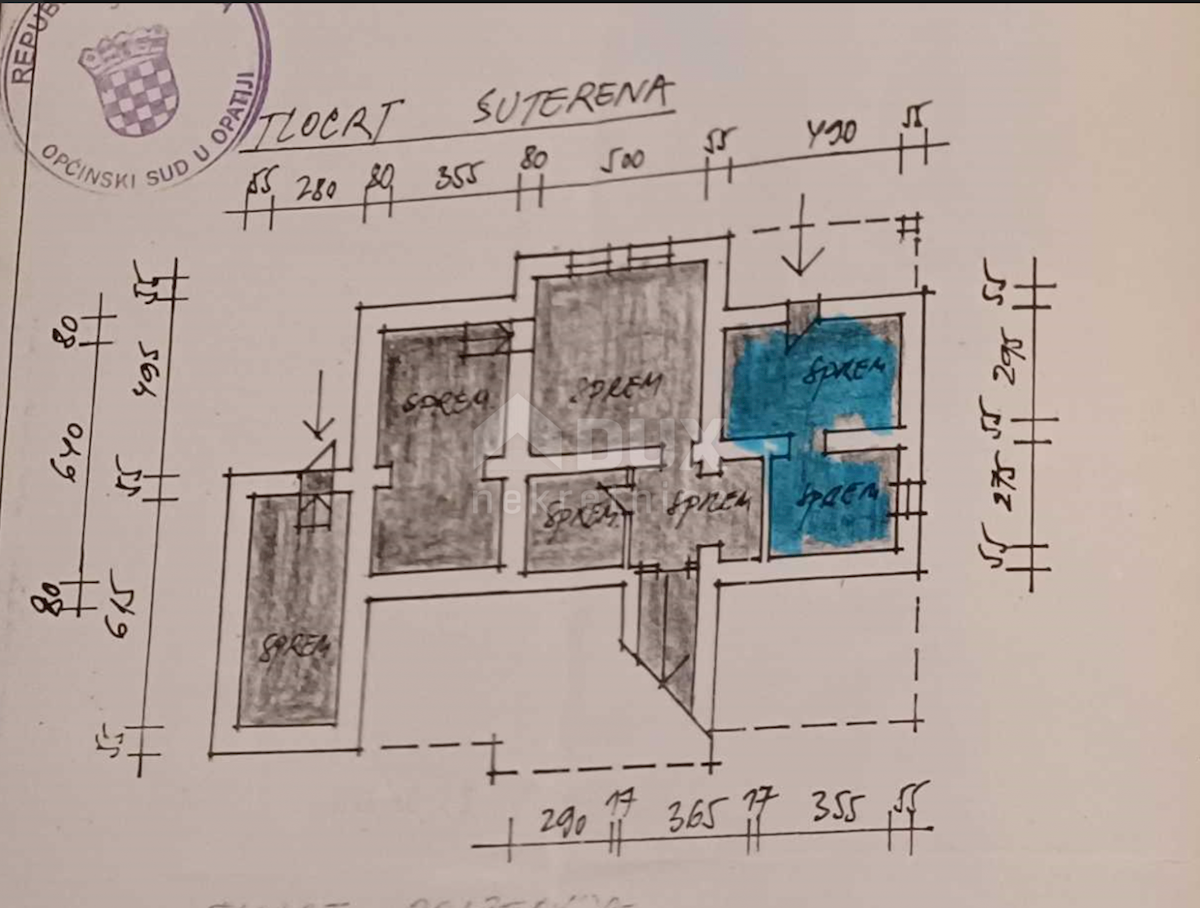 REPUB
OPĆINSKI SUD U OPATIJI
TLOCRT SUTERENA
55 280 80 355 80 500 55 490 55
55 495 55 615 55
80 640 80
55 295 55 275 55
SPREM
SPREM
SPREM
SPREM
SPREM
SPREM
SPREM
SPREM
DUX
nekretnine
290 17 365 17 355 55